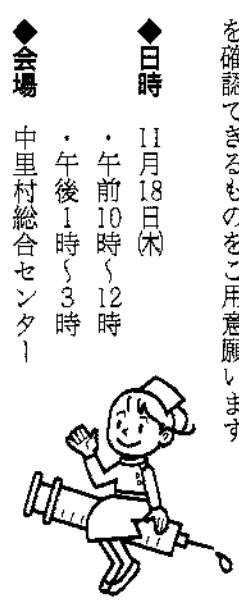 を確認できるものをご用意願います
◆日時　11月18日㈭
・午前10時〜12時
・午後1時〜3時
◆会場　中里村総合センター